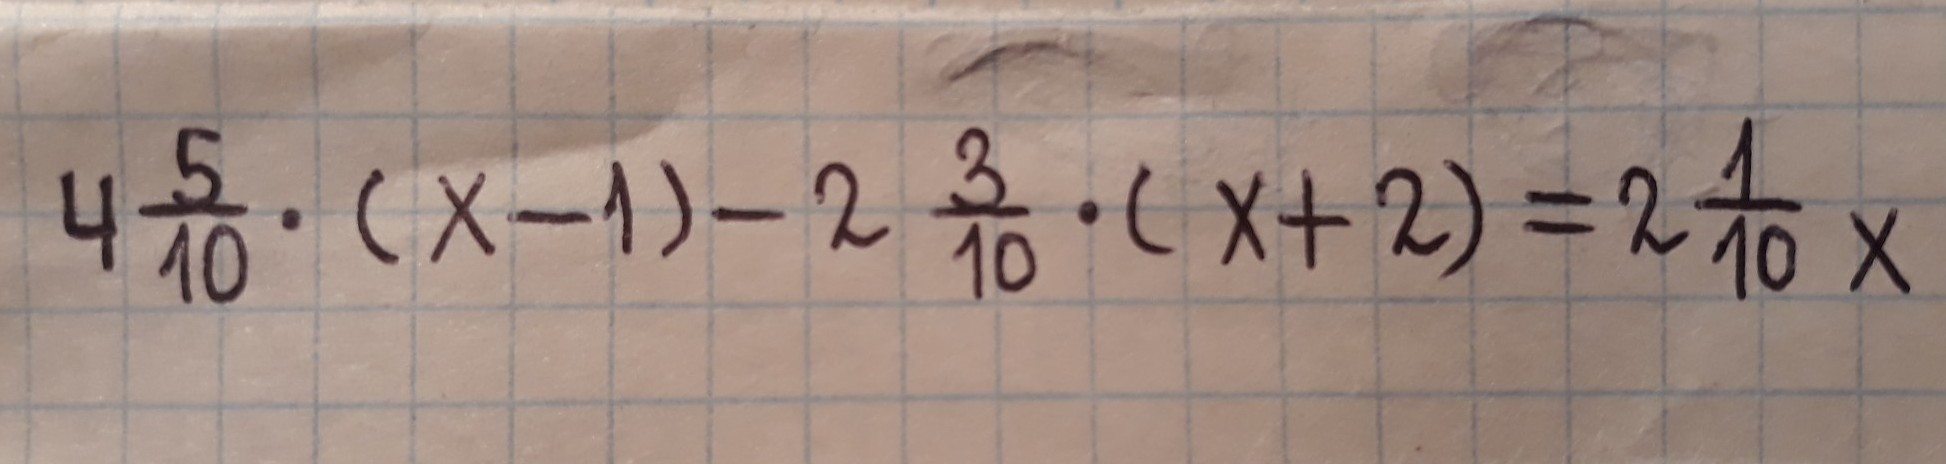 4 5/10 · (x-1) - 2 3/10 · (x+2) = 2 1/10 x